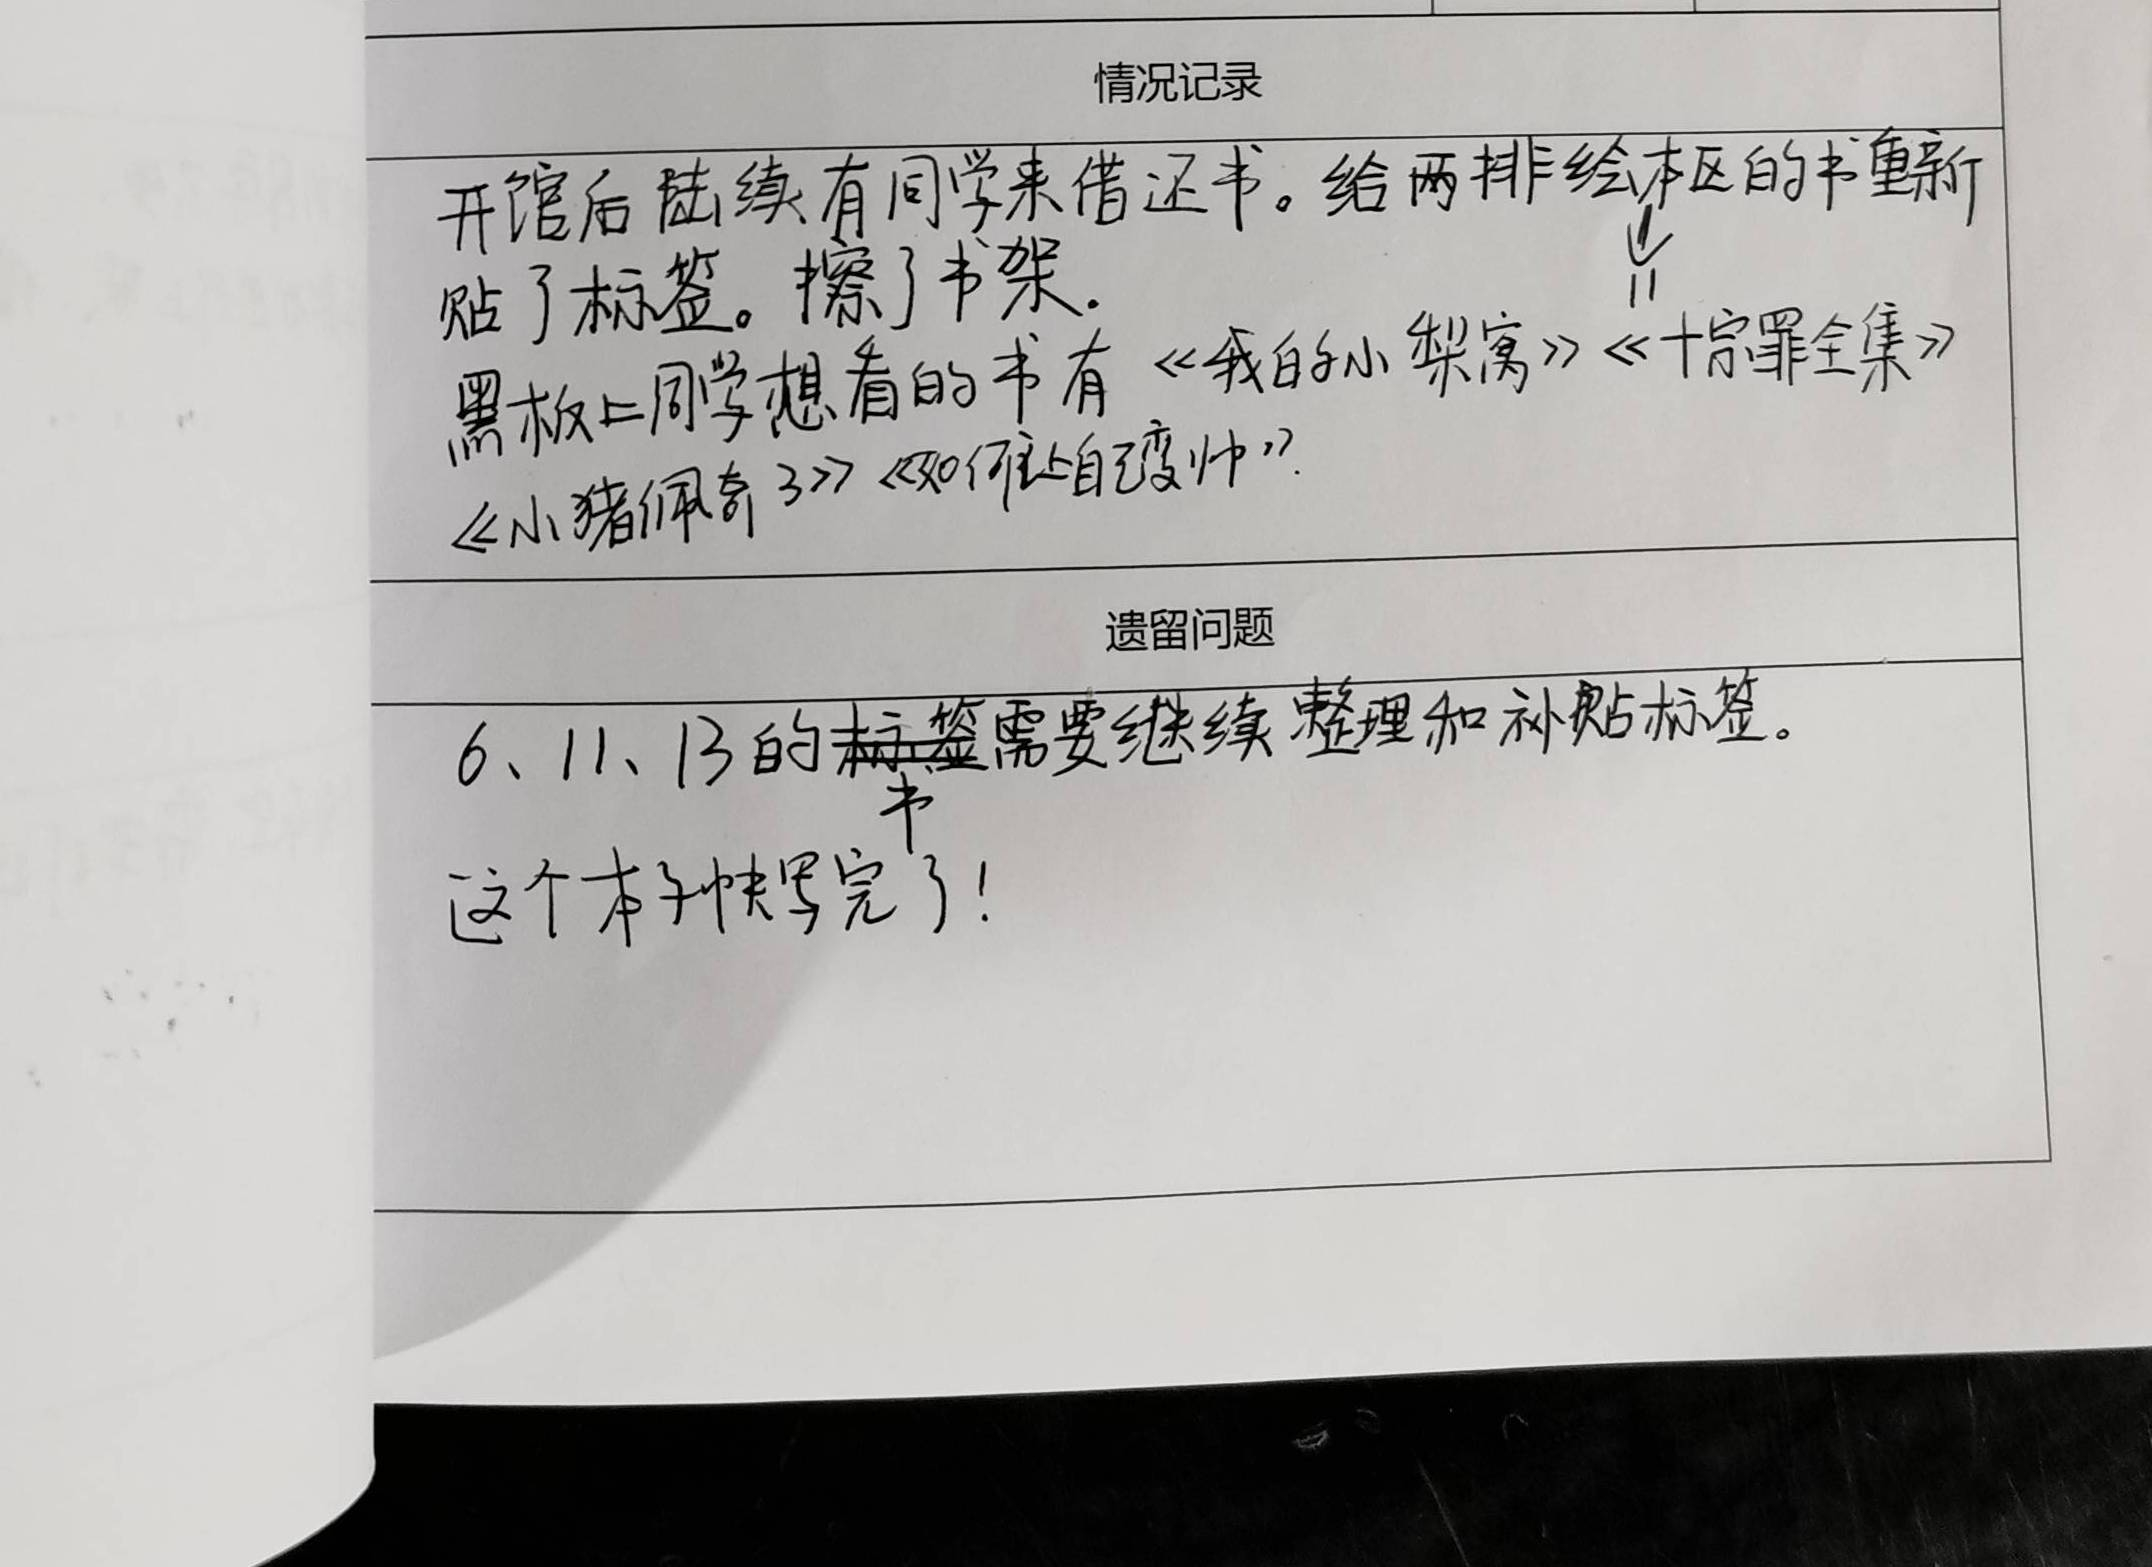 情况记录
开馆后陆续有同学来借还书。给两排绘本区的书重新
11
贴了标签。擦了书架.
黑板上同学想看的书有《我的小梨窝》《十宗罪全集》
《小猪佩奇3》《如何让自己变帅》.
遗留问题
6、11、13的标签需要继续整理和补贴标签。
书
这个本子快写完了!